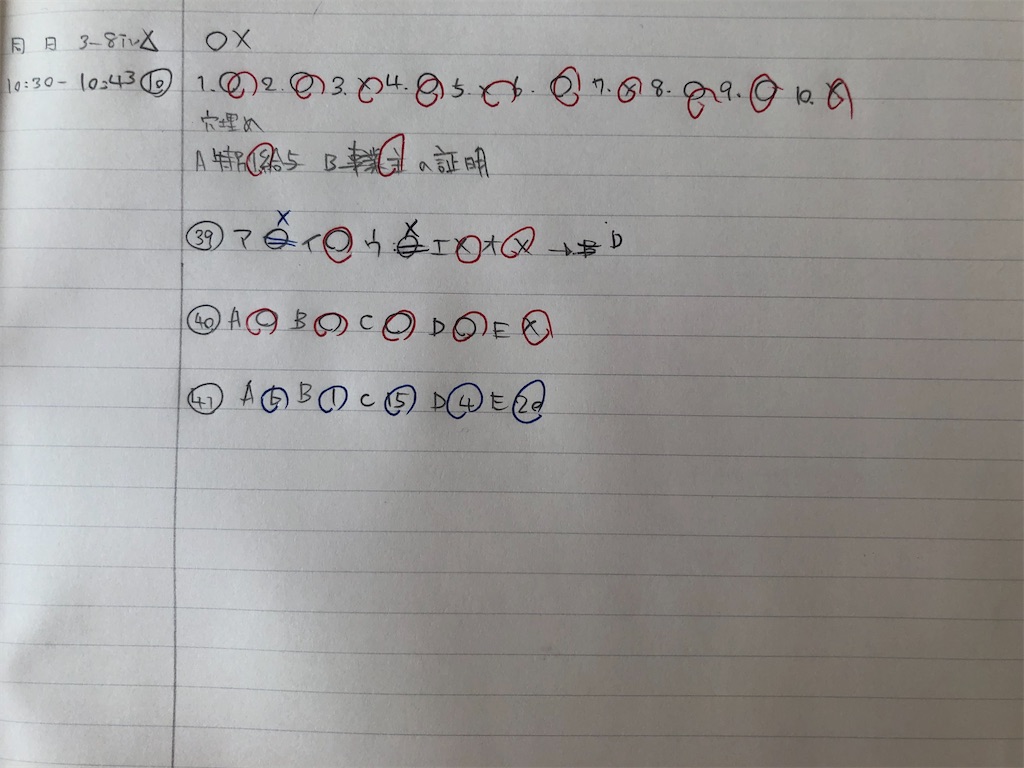 月 日 3-8 ○×
10:30 - 10:43 ⑩ 1. ○ 2. ○ 3. × 4. ○ 5. × 6. ○ 7. × 8. ○ 9. ○ 10. ×
穴埋め
A 特別給与 B 事業主の証明
㊴ ア × イ ○ ウ × エ × オ × → D
㊵ A ○ B ○ C ○ D ○ E ×
㊶ A ⑤ B ① C ⑤ D ④ E ⑳